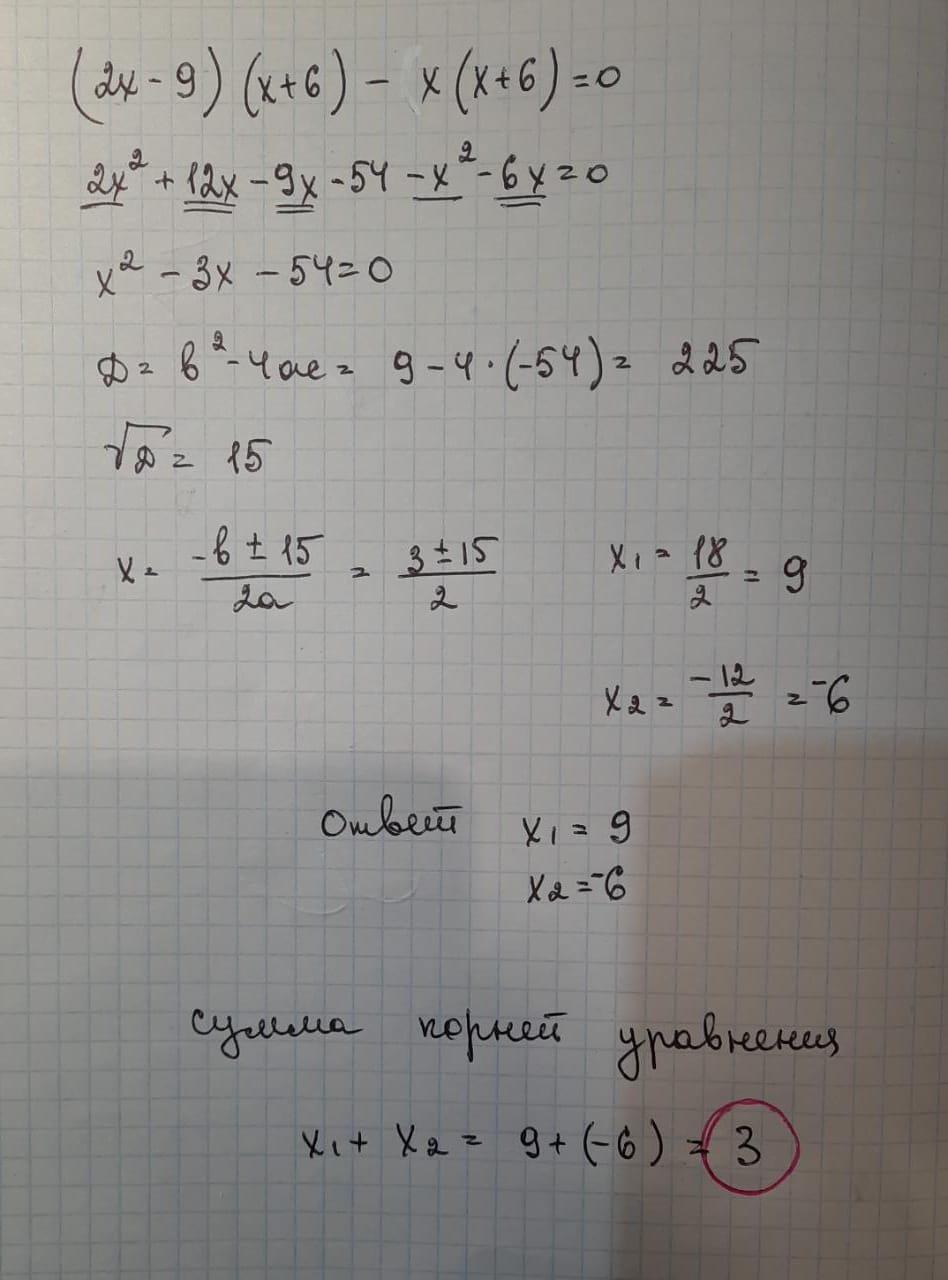 (2x - 9)(x+6) - x(x+6) = 0
2x² + 12x - 9x - 54 - x² - 6x = 0
x² - 3x - 54 = 0
D = b² - 4ac = 9 - 4·(-54) = 225
√D = 15
x = (-b ± 15)/2a = (3 ± 15)/2 x₁ = 18/2 = 9
x₂ = -12/2 = -6
Ответ x₁ = 9
x₂ = -6
сумма корней уравнения
x₁ + x₂ = 9 + (-6) = 3